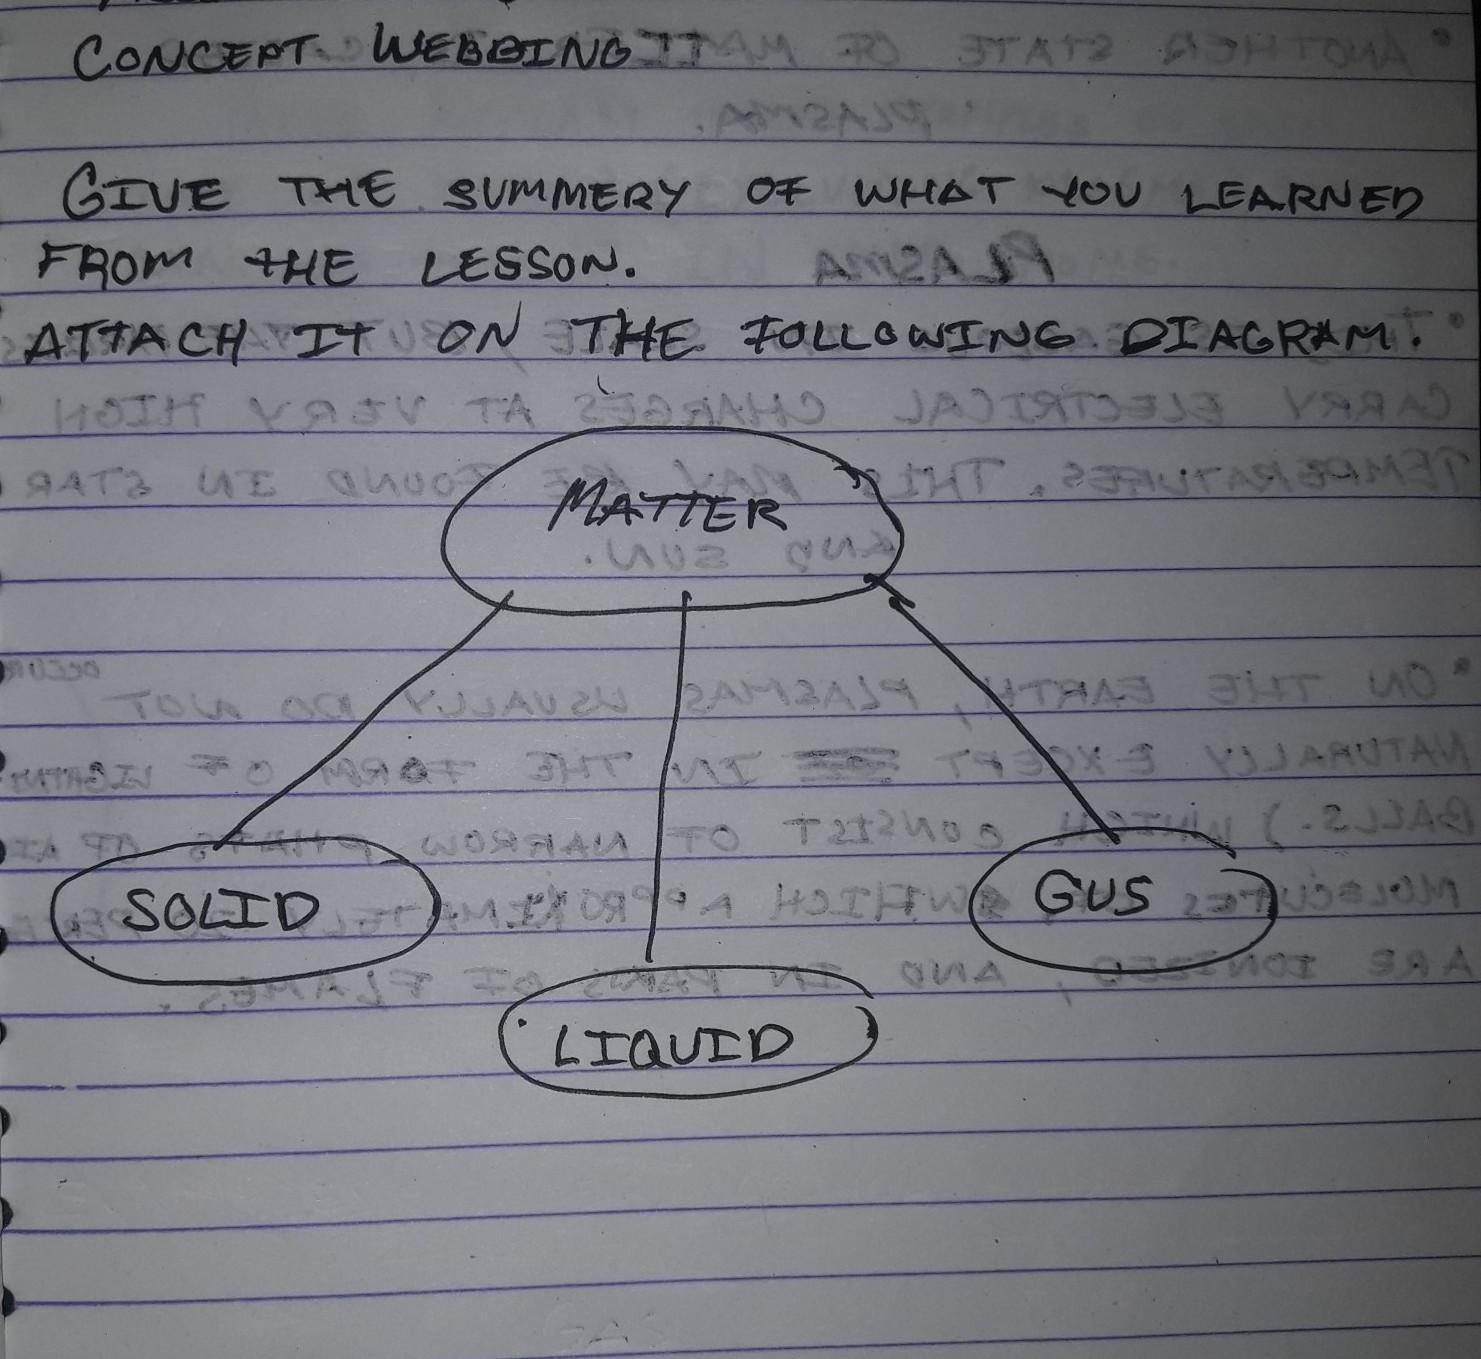 CONCEPT WEBBING
GIVE THE SUMMERY OF WHAT YOU LEARNED
FROM THE LESSON.
ATTACH IT ON THE FOLLOWING DIAGRAM.
MATTER
SOLID
GUS
LIQUID